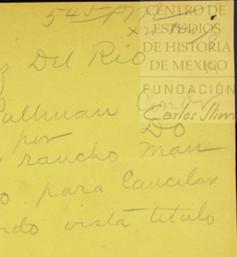 545 pm
CENTRO DE
ESTUDIOS
DE HISTORIA
DE MEXICO
Del Rio
FUNDACIÓN
Carlos Slim
Pullman
por Do
rancho man
o para Cancelar
ndo vista titulo